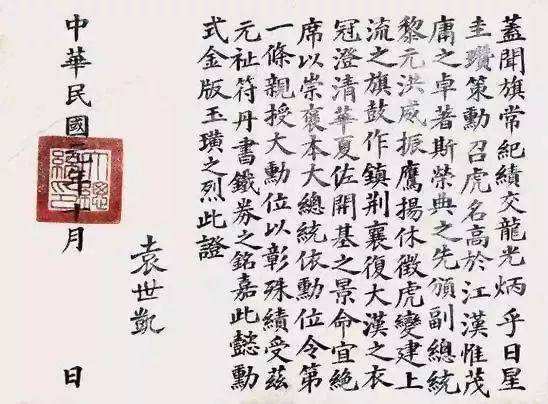 蓋聞旗常紀績交龍光炳乎日星
圭瓚策勳召虎名高於江漢惟茂
庸之卓著斯榮典之先頒副總統
黎元洪威振鷹揚休徵虎變建上
流之旗鼓作鎮荆襄復大漢之衣
冠澄清華夏佐開基之景命宜絶
席以崇褒本大總統依勳位令第
一條親授大勳位以彰殊績受茲
元祉符丹書鐵券之銘嘉此懿勳
式金版玉璜之烈此證
袁世凱
中華民國元年十月
日